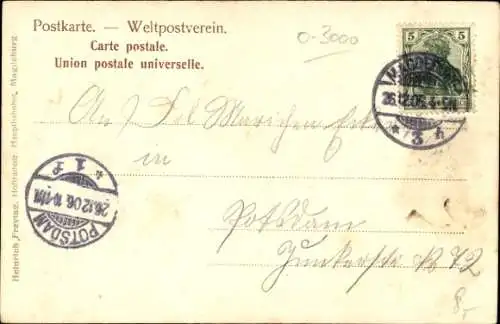 Postkarte. — Weltpostverein.
Carte postale.
Union postale universelle.
0-3000
5 5
MAGDEBURG
26.12.06.
* 3 h
An Frl Mariechen
in
Potsdam
Junkerstr. 72
POTSDAM
26.12.06. 10-11V.
* 1 P
8,-
Heinrich Freytag, Hoflieferant, Hauptbahnhof, Magdeburg